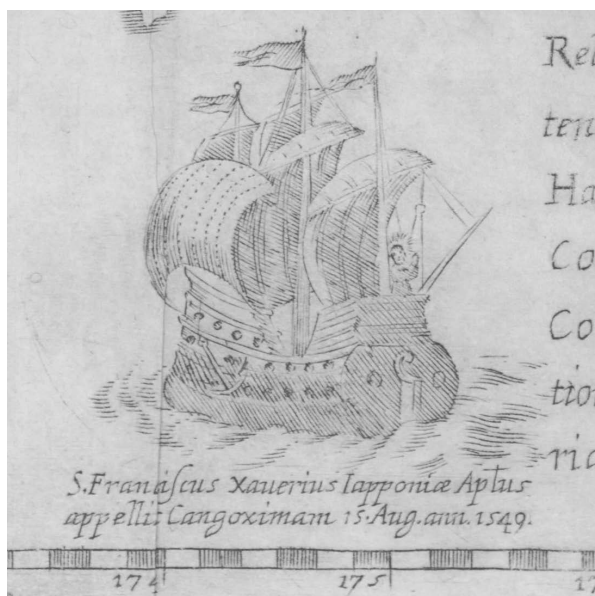 Rel
ten
Ha
Co
Co
tio
ria
S. Franciscus Xauerius Iapponiæ Aptus
appellit Cangoximam 15. Aug. ann. 1549.
174 175 17